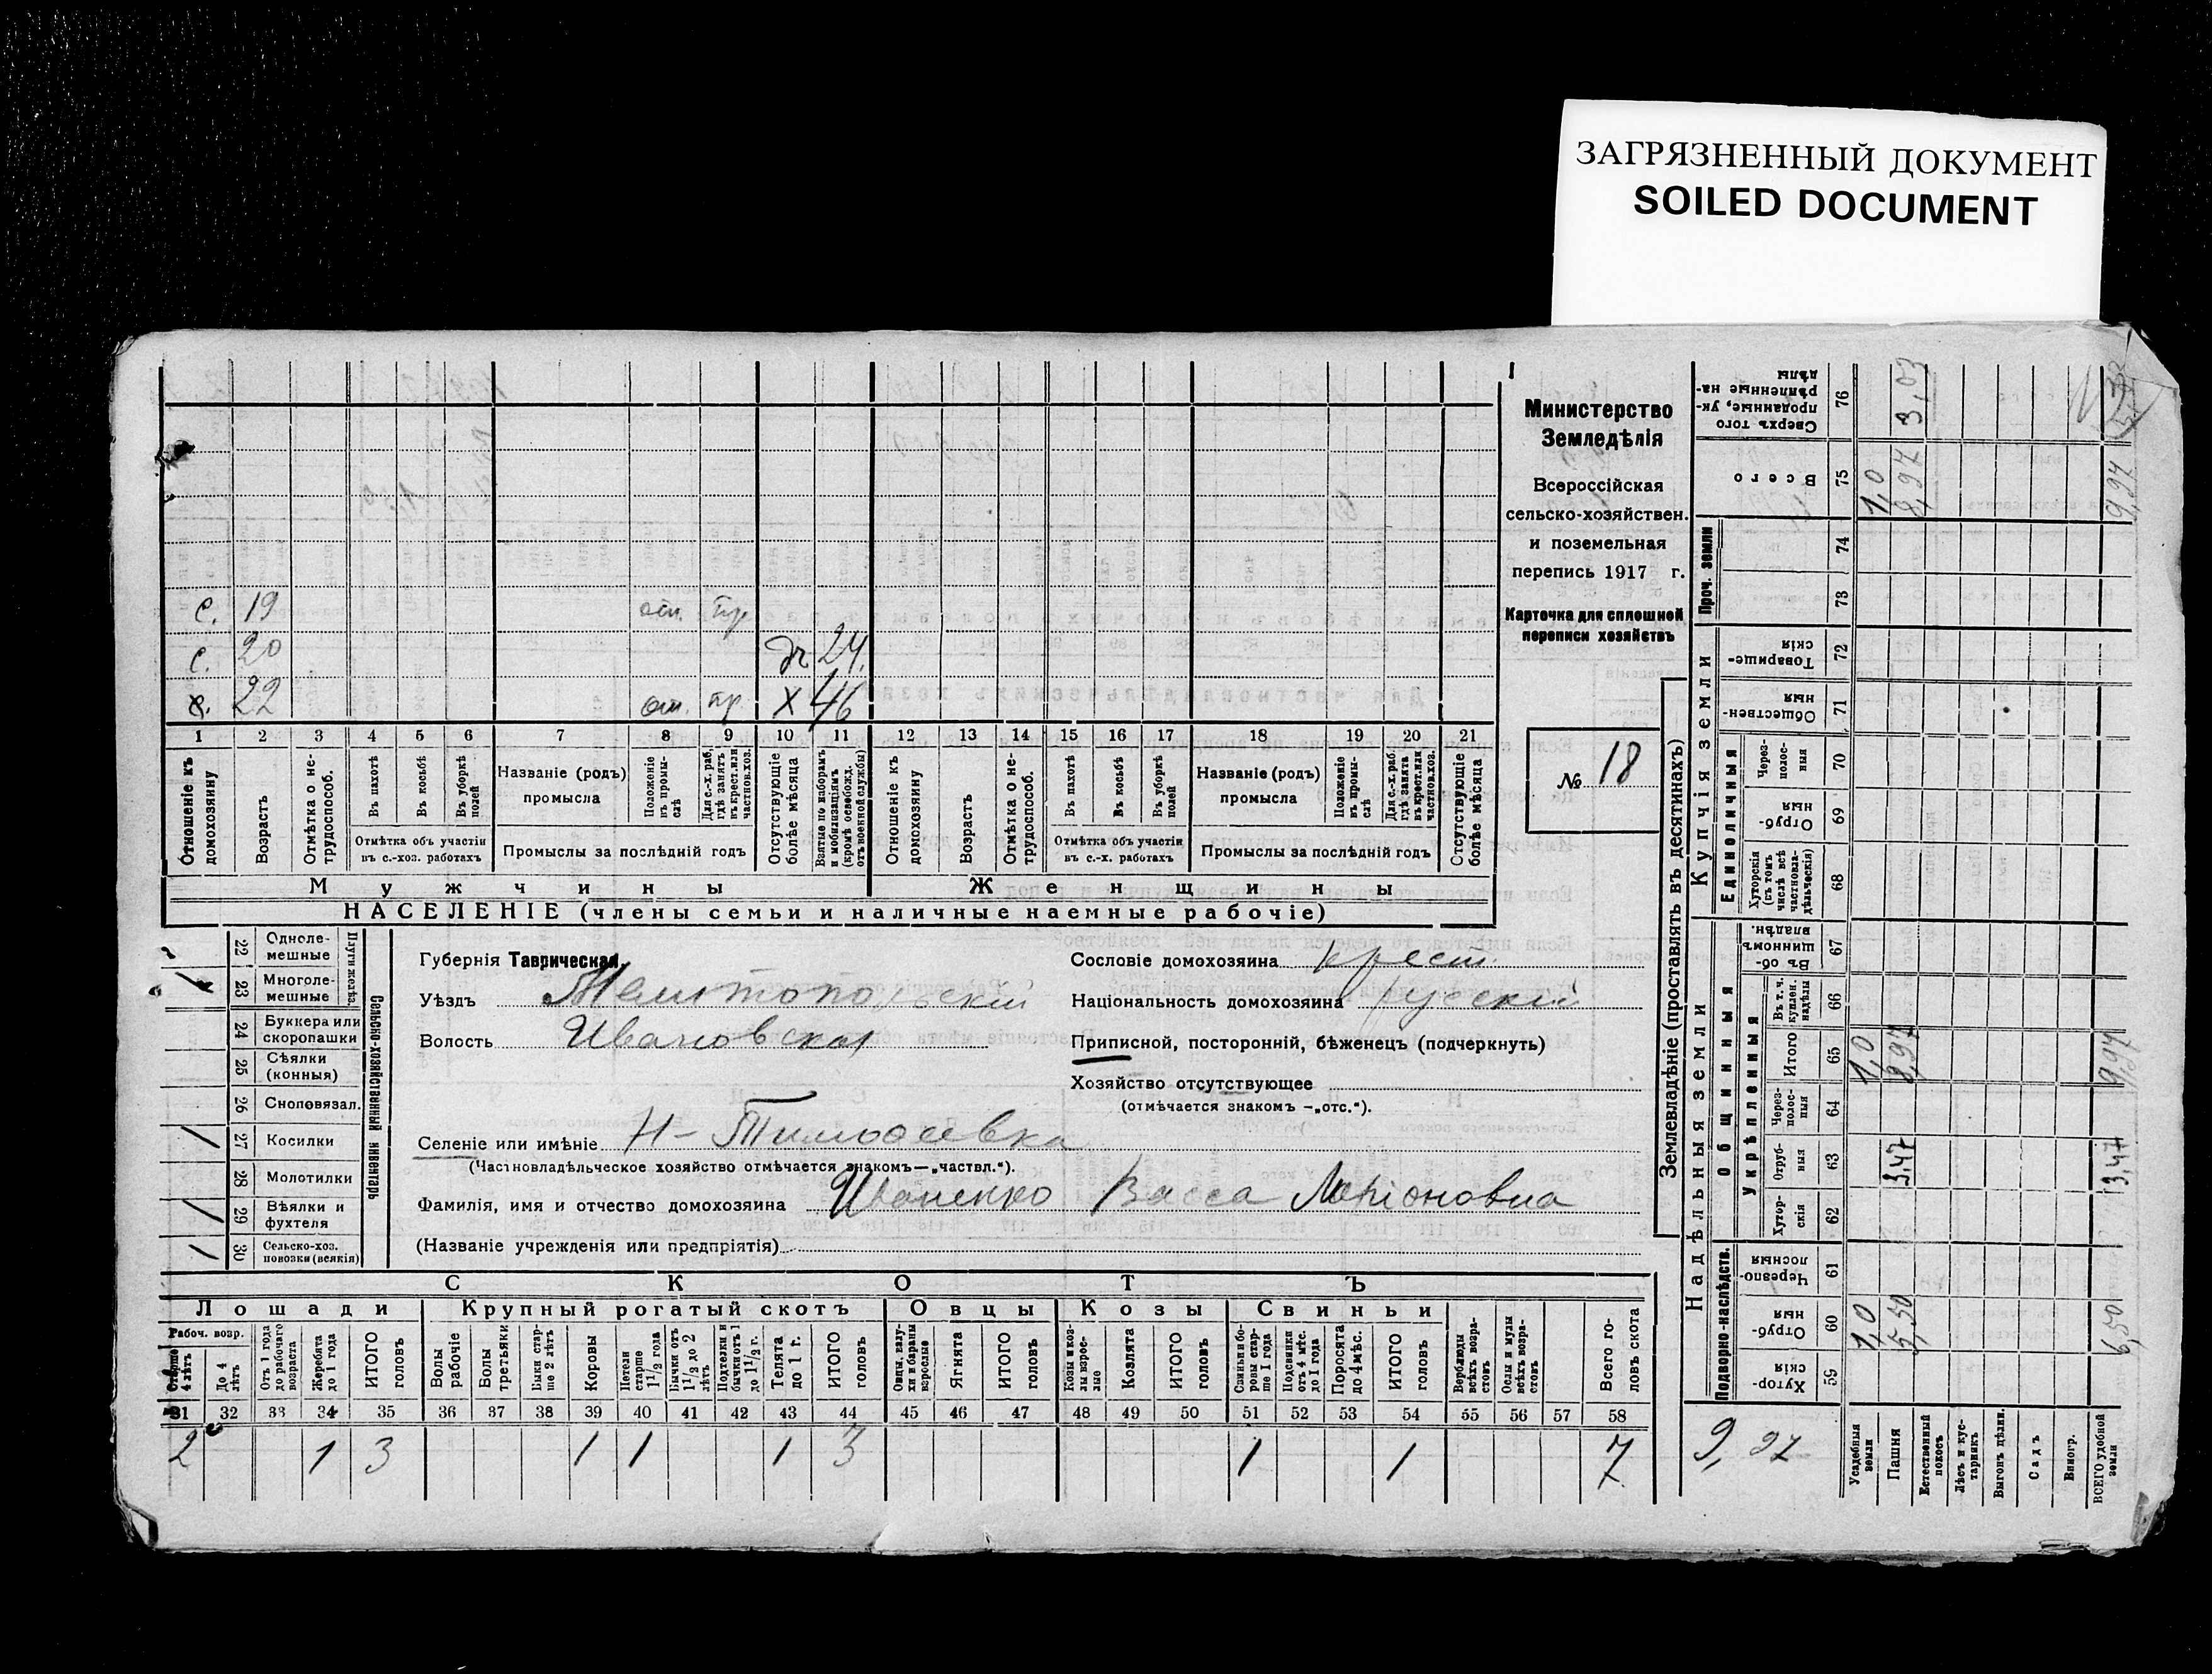 ЗАГРЯЗНЕННЫЙ ДОКУМЕНТ
SOILED DOCUMENT
Министерство
Земледѣлія
Всероссійская
сельско-хозяйствен.
и поземельная
перепись 1917 г.
Карточка для сплошной
переписи хозяйствъ
№ 18
с. 19 от. пр
с. 20 24
22 от. пр х 46
1 2 3 4 5 6 7 8 9 10 11 12 13 14 15 16 17 18 19 20 21
Отношеніе къ домохозяину
Возрастъ
Отмѣтка о не-трудоспособ.
Въ пахотѣ
Въ косьбѣ
Въ уборкѣ полей
Отмѣтка объ участіи въ с.-хоз. работахъ
Названіе (родъ) промысла
Положеніе въ промы-слѣ
Для с.-х. раб. гдѣ занятъ въ крест. или частнов. хоз.
Промыслы за послѣдній годъ
Отсутствующіе болѣе мѣсяца
Взятые по наборамъ и мобилизаціямъ (кромѣ освобожд. отъ военной службы)
Отношеніе къ домохозяину
Возрастъ
Отмѣтка о не-трудоспособ.
Въ пахотѣ
Въ косьбѣ
Въ уборкѣ полей
Отмѣтка объ участіи въ с.-х. работахъ
Названіе (родъ) промысла
Положеніе въ промы-слѣ
Для с.-х. раб. гдѣ занята въ крест. или частнов. хоз.
Промыслы за послѣдній годъ
Отсутствующіе болѣе мѣсяца
Мужчины
Женщины
НАСЕЛЕНІЕ (члены семьи и наличные наемные рабочіе)
Сельско-хозяйственный инвентарь
Плуги желѣз.
22 Одноле-мешные
23 Многоле-мешные
24 Буккера или скоропашки
25 Сѣялки (конныя)
26 Сноповязал.
27 Косилки /
28 Молотилки
29 Вѣялки и фухтеля /
30 Сельско-хоз. повозки (всякія) /
Губернія Таврическая.
Уѣздъ Мелитопольскій
Волость Ивановская
Селеніе или имѣніе Н-Тимофеевка
(Частновладѣльческое хозяйство отмѣчается знакомъ—„частвл.“).
Фамилія, имя и отчество домохозяина Иваненко Васса Ларіоновна
(Названіе учрежденія или предпріятія)
Сословіе домохозяина крест.
Національность домохозяина русскій
Приписной, посторонній, бѣженецъ (подчеркнуть)
Хозяйство отсутствующее
(отмѣчается знакомъ —„отс.“).
СКОТЪ
Лошади
Крупный рогатый скотъ
Овцы
Козы
Свиньи
Рабоч. возр.
Старше 4 лѣтъ
До 4 лѣтъ
Отъ 1 года до рабочаго возраста
Жеребята до 1 года
ИТОГО головъ
Волы рабочіе
Волы третьяки
Быки стар-ше 2 лѣтъ
Коровы
Нетели старше 1 1/2 года
Бычки отъ 1 1/2 до 2 лѣтъ
Подтелки и бычки отъ 1 до 1 1/2 г.
Телята до 1 г.
ИТОГО головъ
Овцы, валу-хи и бараны взрослые
Ягнята
ИТОГО головъ
Козы и коз-лы взрос-лые
Козлята
ИТОГО головъ
Свиньи и бо-ровы стар-ше 1 года
Подсвинки отъ 4 мѣс. до 1 года
Поросята до 4 мѣс.
ИТОГО головъ
Верблюды всѣхъ возра-стовъ
Ослы и мулы всѣхъ возра-стовъ
Всего го-ловъ скота
31 32 33 34 35 36 37 38 39 40 41 42 43 44 45 46 47 48 49 50 51 52 53 54 55 56 57 58
2 1 3 1 1 1 3 1 1 7
Землевладѣніе (проставлять въ десятинахъ)
Надѣльныя земли
Купчія земли
Проч. земли
Подворно-наслѣдств.
Общинныя
Укрѣпленныя
Единоличныя
59 Хутор-скія
60 Отруб-ныя
61 Черезпо-лосныя
62 Хутор-скія
63 Отруб-ныя
64 Через-полос-ныя
65 Итого
66 Въ т. ч. куплен. надѣлы
67 Въ об-щинномъ владѣн.
68 Хуторскія (въ томъ числѣ всѣ частновла-дѣльческія)
69 Отруб-ныя
70 Через-полос-ныя
71 Обществен-ныя
72 Товарище-скія
73
74
75 Всего
76 Сверхъ того проданные, ук-рѣпленные на-дѣлы
Усадебныя земли 1,0 1,0 1,0
Пашня 5,50 3,47 8,97 8,97 3,03
Естественный покосъ
Лѣсъ и кус-тарникъ
Выгонъ дѣлин.
Садъ
Виногр.
ВСЕГО удобной земли 6,50 3,47 9,97 9,97
9,97